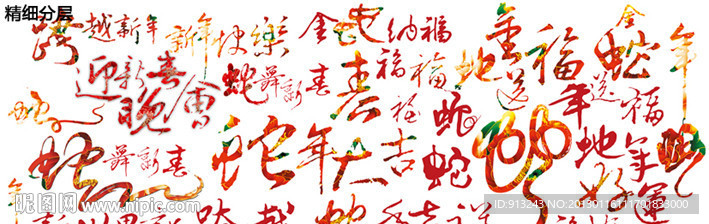 精细分层
跨
越新年
新年快樂
金蛇
纳福
金蛇送福
金蛇年
迎新春晚會
蛇舞新春
福
福
春
年送福
蛇
舞新春
蛇年大吉
福
蛇
蛇
蛇年好運
昵图网 www.nipic.com
ID:913243 NO:20190116111701838000